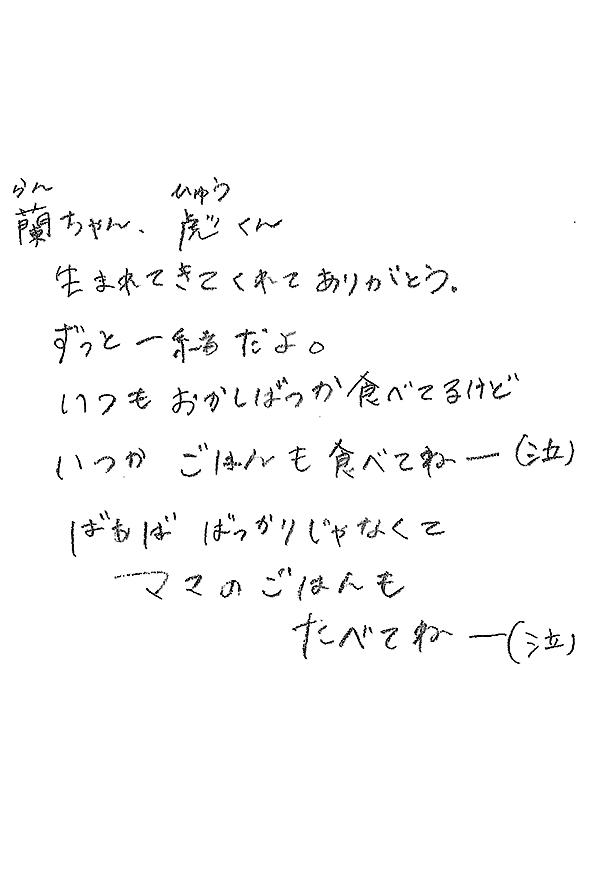 らん ひゅう
蘭ちゃん、虎くん
生まれてきてくれてありがとう。
ずっと一緒だよ。
いつもおかしばっか食べてるけど
いつか ごはんも食べてねー(泣)
ばあば ばっかりじゃなくて
ママのごはんも
たべてねー(泣)